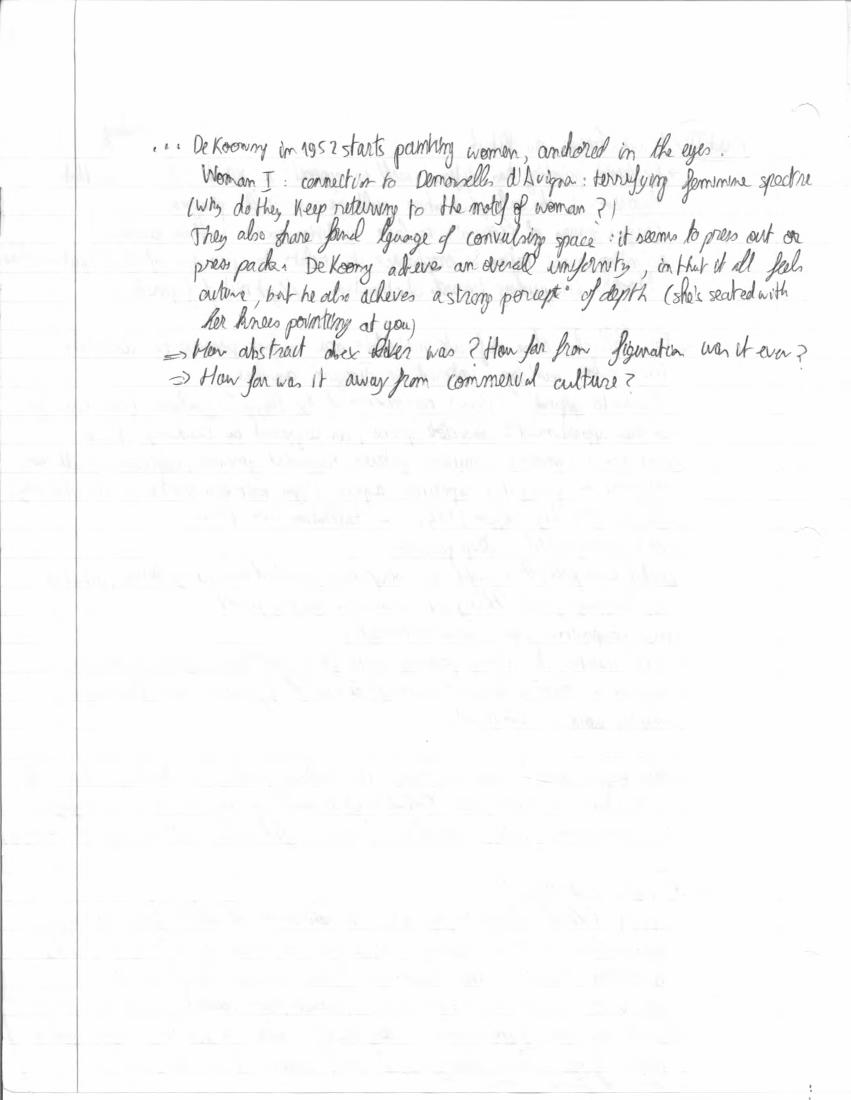 ... De Koonny in 1952 starts painting women, anchored in the eyes.
Woman I : connection to Demoiselles d'Avigna : terrifying feminine spectre
(why do they keep returning to the motif of woman ?)
They also share formal lguage of convulsing space : it seems to press out or
press back. De Koony achieves an overall uniformity, in that it all feels
, but he also achieves a strong percept° of depth (she's seated with
her knees pointing at you)
⇒ How abstract abex was ? How far from figuration was it ever ?
⇒ How far was it away from commercial culture ?